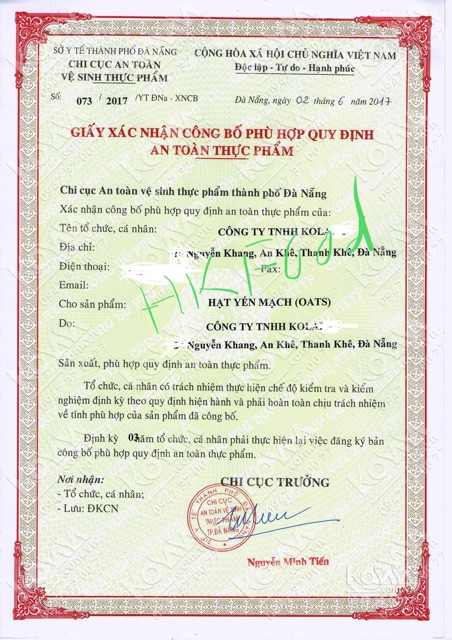 SỞ Y TẾ THÀNH PHỐ ĐÀ NẴNG
CHI CỤC AN TOÀN
VỆ SINH THỰC PHẨM
CỘNG HÒA XÃ HỘI CHỦ NGHĨA VIỆT NAM
Độc lập - Tự do - Hạnh phúc
Số: 073 / 2017 /YT ĐNa - XNCB
Đà Nẵng, ngày 02 tháng 6 năm 2017
GIẤY XÁC NHẬN CÔNG BỐ PHÙ HỢP QUY ĐỊNH
AN TOÀN THỰC PHẨM
Chi cục An toàn vệ sinh thực phẩm thành phố Đà Nẵng
Xác nhận công bố phù hợp quy định an toàn thực phẩm của:
Tên tổ chức, cá nhân: CÔNG TY TNHH KOLA
Địa chỉ: Nguyễn Khang, An Khê, Thanh Khê, Đà Nẵng
Điện thoại: Fax:
Email:
HKFood
Cho sản phẩm: HẠT YẾN MẠCH (OATS)
Do: CÔNG TY TNHH KOLA
Nguyễn Khang, An Khê, Thanh Khê, Đà Nẵng
Sản xuất, phù hợp quy định an toàn thực phẩm.
Tổ chức, cá nhân có trách nhiệm thực hiện chế độ kiểm tra và kiểm
nghiệm định kỳ theo quy định hiện hành và phải hoàn toàn chịu trách nhiệm
về tính phù hợp của sản phẩm đã công bố.
Định kỳ 03 năm tổ chức, cá nhân phải thực hiện lại việc đăng ký bản
công bố phù hợp quy định an toàn thực phẩm.
Nơi nhận:
- Tổ chức, cá nhân;
- Lưu: ĐKCN
CHI CỤC TRƯỞNG
CHI CỤC
AN TOÀN VỆ SINH
THỰC PHẨM
TP.ĐÀ NẴNG
Nguyễn Minh Tiến